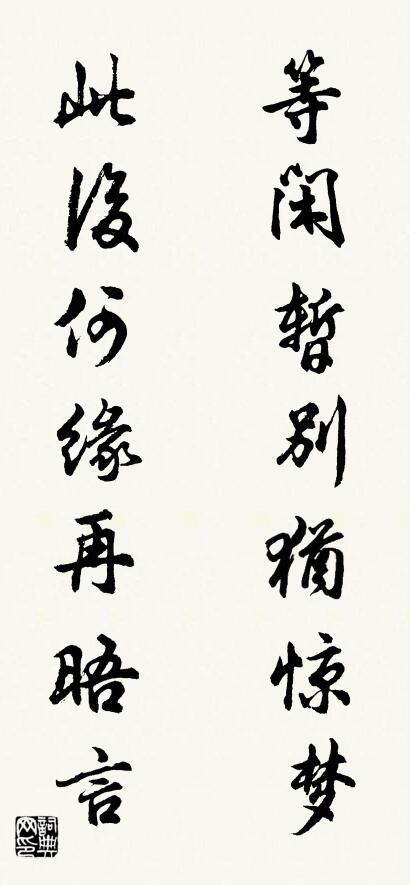 等闲暂别犹惊梦
此後何缘再晤言
詞典网印